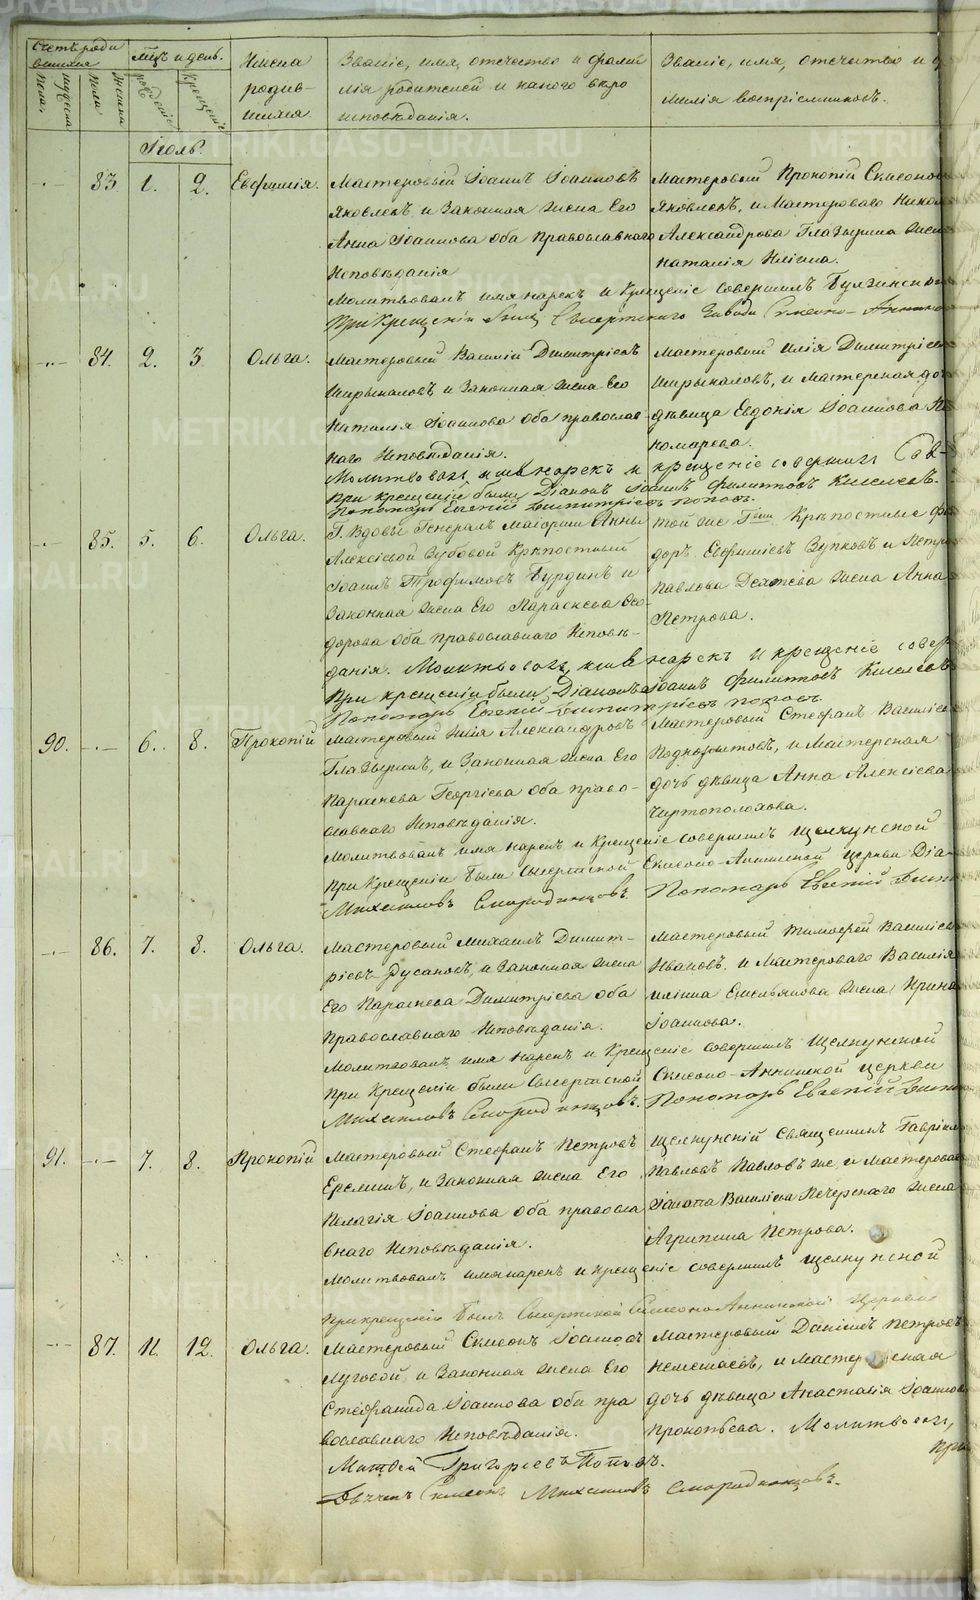 Счетъ роди
вшихся
Мцъ и день.
Имена
родив-
шихся.
Званіе, имя, отчество и фами
лія родителей и какого вѣро
исповѣданія.
Званіе, имя, отчество и
милія воспріемниковъ.
мужеска
пола.
женска
пола
рожденіе
крещеніе
Іюль.
83. 1. 2. Евфимія.
Мастеровый Іоаннъ Іоанновъ
Яковлевъ и Законная жена Его
Анна Іоаннова оба Православнаго
Исповѣданія
Мастеровый Прокопій
Яковлевъ, и Мастероваго
Александрова Глазырина
Наталія
Молитвовалъ имя нарекъ и Крещеніе совершилъ
При Крещеніи Сысертскаго Завода
84. 2. 3 Ольга.
Мастеровый Василій Димитріевъ
Ширыкаловъ и Законная жена Его
Наталія Іоаннова оба православ-
наго Исповѣданія.
Мастеровый Илія Димитріев
Ширыкаловъ, и Мастерская до
дѣвица Евдокія Іоаннова По
номарева.
Молитвовалъ имя нарекъ и крещеніе совершилъ
При крещеніи были Діаконъ Іоаннъ Филиповъ Киселевъ.
Пономарь Евгеній Димитріевъ Поповъ.
85. 5. 6. Ольга.
Г. Вдовы Генералъ маіорши Анны
Алексѣевой Зубовой Крѣпостный
Іоаннъ Трофимовъ Бурдинъ и
Законная жена Его Параскева Ѳео-
дорова оба православнаго Исповѣ-
данія. Молитвовалъ имя нарекъ и крещеніе совер
той же Гжи Крѣпостные Ѳе
доръ Евфиміевъ Зупковъ и Петра
Павлова жена Анна
Петрова.
При крещеніи были Діаконъ Іоаннъ Филиповъ Киселевъ
Пономарь Евгеній Димитріевъ Поповъ.
90. 6. 8. Прокопій
Мастеровый Илія Александровъ
Глазыринъ, и Законная жена Его
Параскева Георгіева оба право-
славнаго Исповѣданія.
Мастеровый Стефанъ Василіев
Подкорытовъ, и Мастерская
дочь дѣвица Анна Алексіева
Чертополохова.
Молитвовалъ имя нарекъ и Крещеніе совершилъ Щелкунской
При Крещеніи были Сысертской Симеоно-Аннинской церкви Діа-
Михаиловъ Смородинцовъ. Пономарь Евгеній Дими
86. 7. 8. Ольга.
Мастеровый Михаилъ Димит-
ріевъ Русановъ, и Законная жена
Его Параскева Димитріева оба
Православнаго Исповѣданія.
Мастеровый Тимофей Василіев
Ивановъ, и Мастероваго Василія
Емельянова жена Ирина
Іоаннова.
Молитвовалъ имя нарекъ и Крещеніе совершилъ Щелкунской
При Крещеніи были Сысертской Симеоно-Аннинской церкви
Михаиловъ Смородинцовъ. Пономарь Евгеній Дими
91. 7. 8. Прокопій
Мастеровый Стефанъ Петровъ
Ереминъ, и Законная жена Его
Пелагія Іоаннова оба правосла
внаго Исповѣданія.
Щелкунскій Священникъ Гавріил
Павловъ Павловъ же, и Мастероваго
Іакова Василіева Печерскаго жена
Агрипина Петрова.
Молитвовалъ имя нарекъ и крещеніе совершилъ щелкунской
При крещеніи былъ Сысертской Симеоно Аннинской Церкви
87. 11. 12. Ольга.
Мастеровый Симеонъ Іоанновъ
Луговой, и Законная жена Его
Стефанида Іоаннова оба пра
вославнаго Исповѣданія.
Мастеровый Даніилъ Петровъ
Немешаевъ, и Мастерская
дочь дѣвица Анастасія Іоаннова
Прокопьева. Молитвовалъ,
при
Матвей Григорьевъ Поповъ.
Дьячекъ Симеонъ Михаиловъ Смородинцовъ.
METRIKI.GASO-URAL.RU